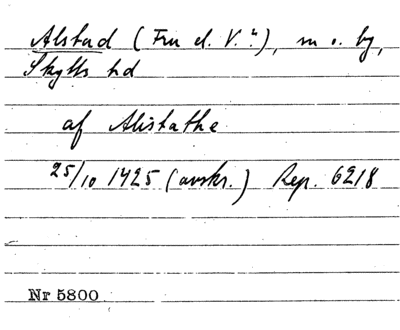 Alstad (Fru el. V.a), sn o. by,
Skytts hd
af Alistathe
25/10 1425 (avskr.) Rep. 6218
Nr 5800